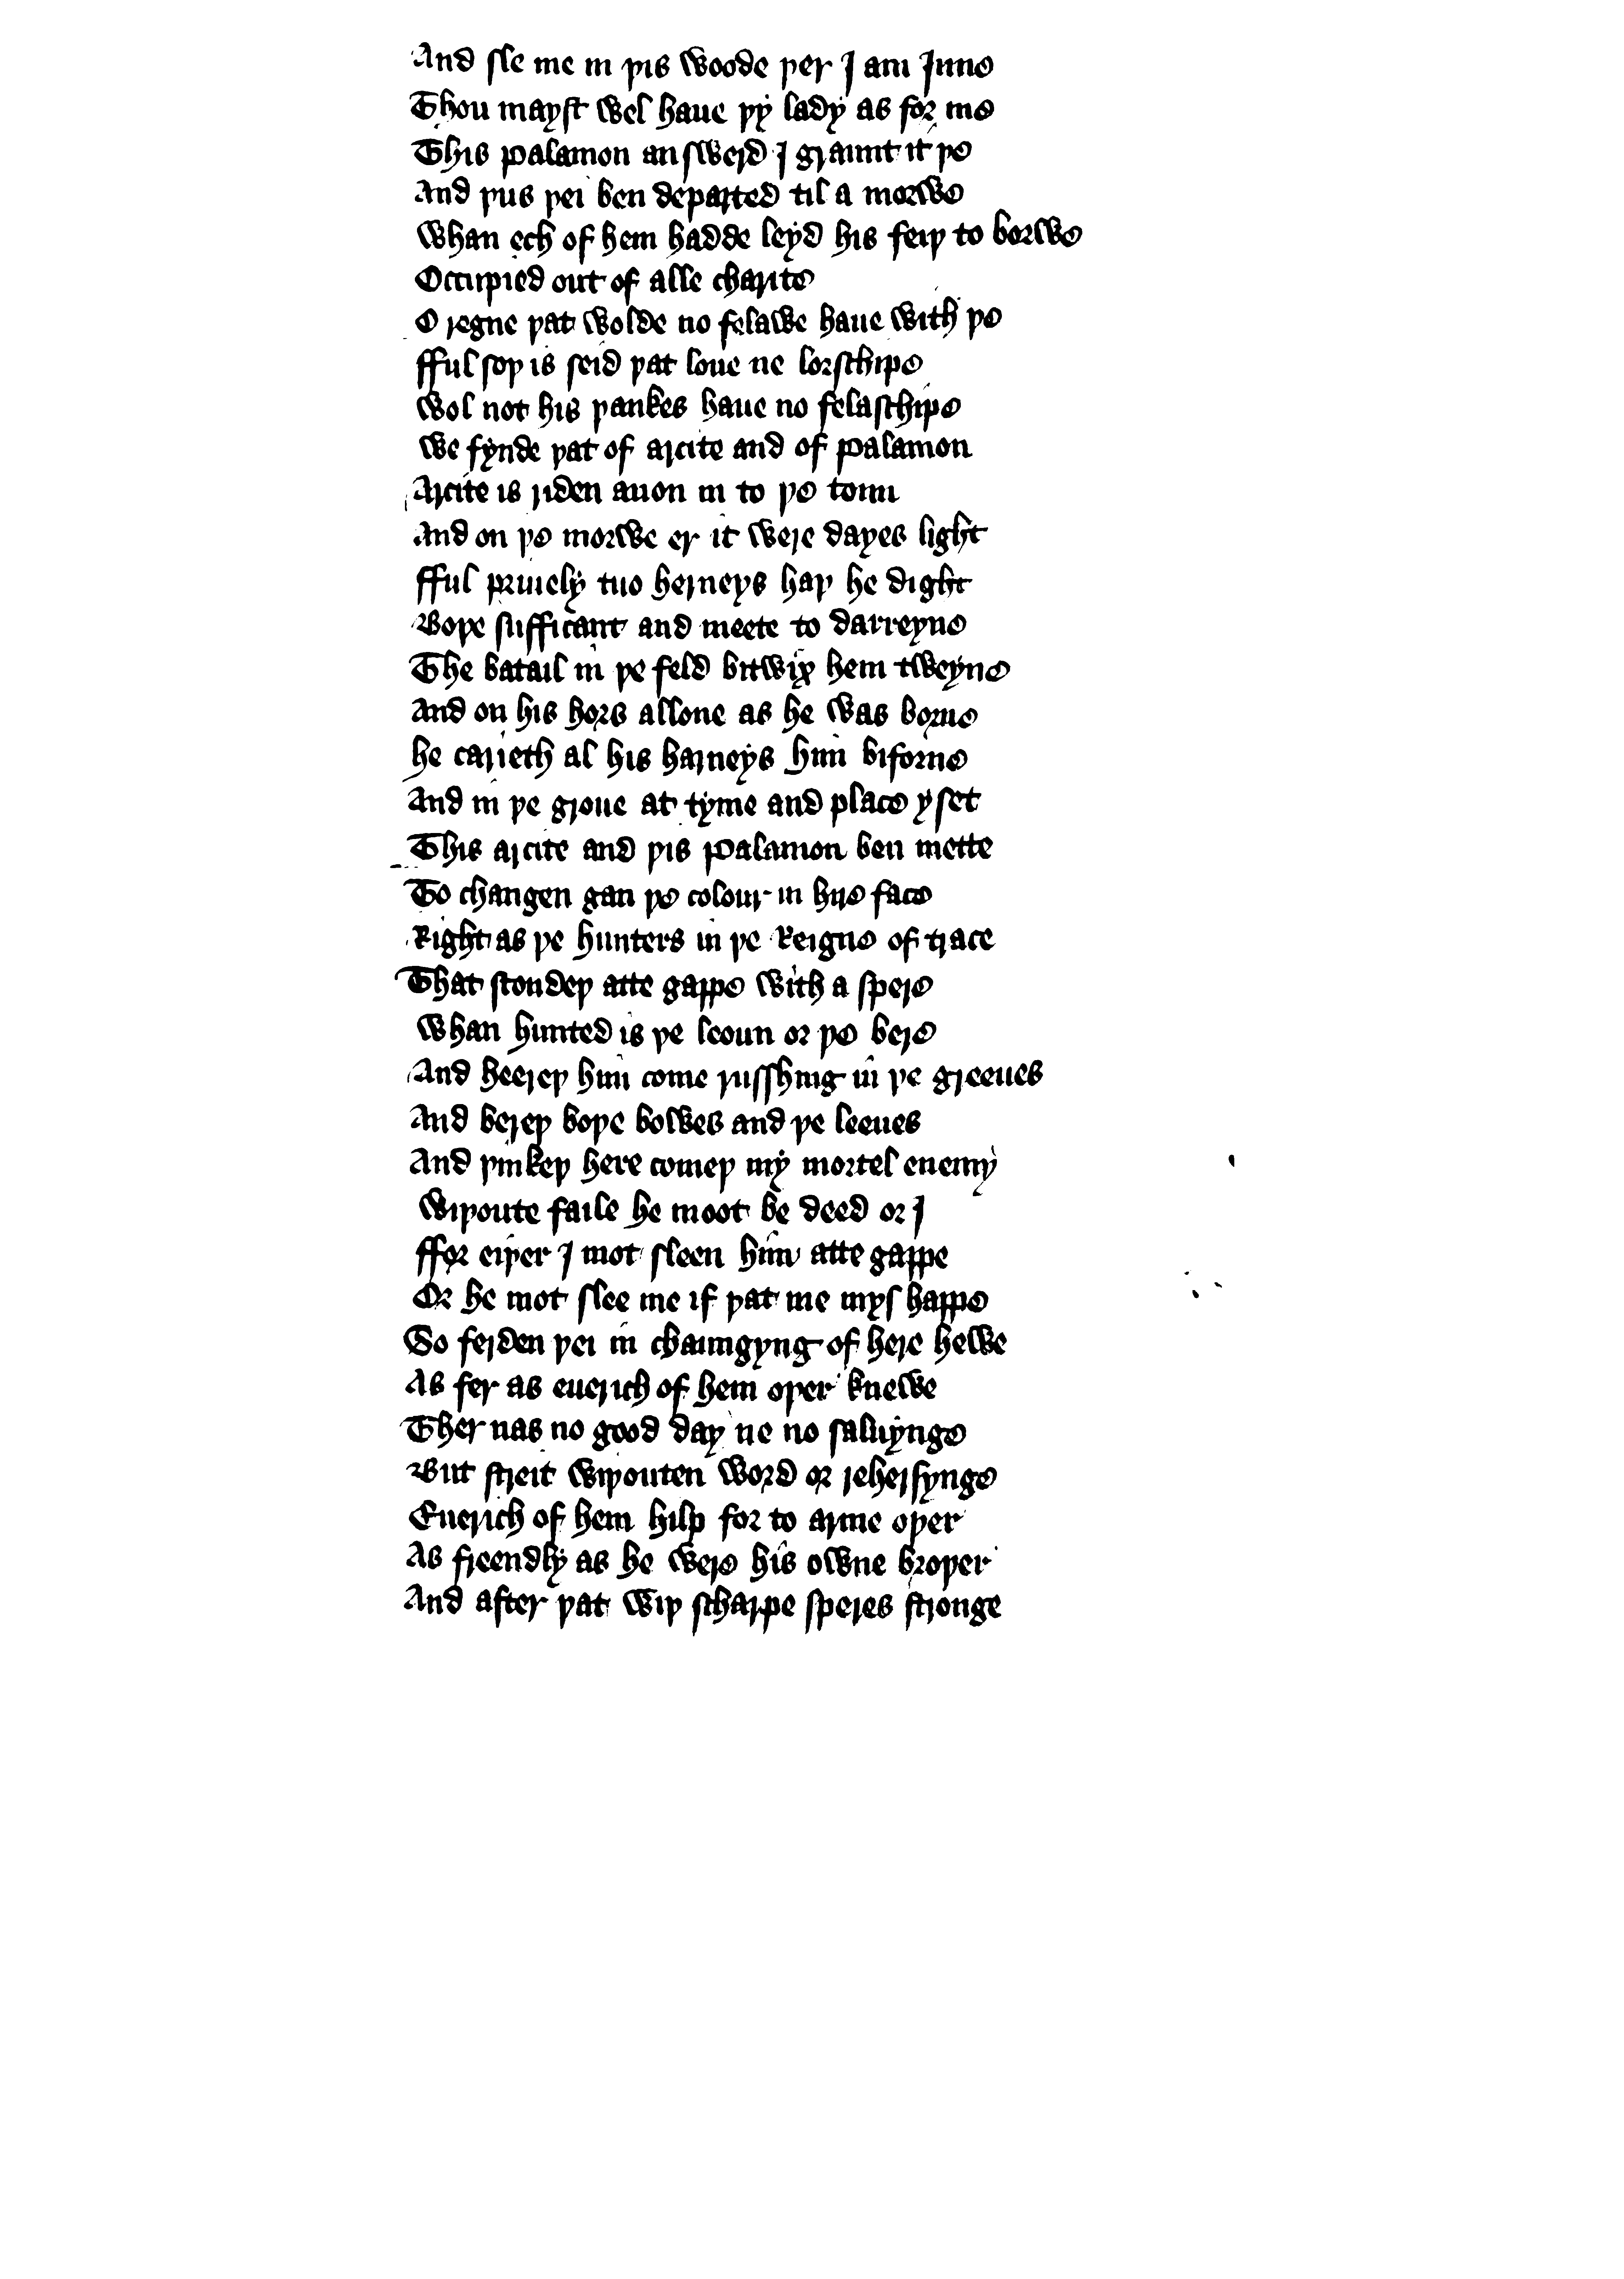 And sle me in þis woode þer I am Inne
Thou mayst wel haue þy lady as for me
This palamon answerd I graunt it þe
And þus þei ben departed til a morwe
Whan ech of hem hadde leyd his feiþ to borwe
Occupied out of alle charite
O regne þat wolde no felawe haue with þe
fful soþ is seid þat loue ne lorschipe
Wol not his þankes haue no felaschipe
We fynde þat of arcite and of palamon
Arcite is riden anon in to þe toun
And on þe morwe er it were dayes light
fful priuely tuo herneys haþ he dight
Boþe sufficant and meete to darreyne
The batail in þe feld bitwix hem tweyne
And on his hors allone as he was borne
he carieth al his harneys him biforne
And in þe groue at tyme and place y set
This arcite and þis palamon ben mette
To changen gan þe colour in hire face
Right as þe hunters in þe Reigne of trace
That stondeþ atte gappe with a spere
Whan hunted is þe leoun or þe bere
And heereþ him come russhing in þe greeues
And bereþ boþe bowes and þe leeues
And þinkeþ here comeþ my mortel enemy
Wiþoute faile he moot be deed or I
ffor eiþer I mot sleen him atte gappe
Or he mot slee me if þat me myshappe
So ferden þei in chaungyng of here hewe
As fer as euerich of hem oþer knewe
Ther nas no good day ne no saluynge
But streit wiþouten word or rehersynge
Euerich of hem hilp for to arme oþer
As freendly as he were his owne broþer
And after þat wiþ scharpe speres stronge